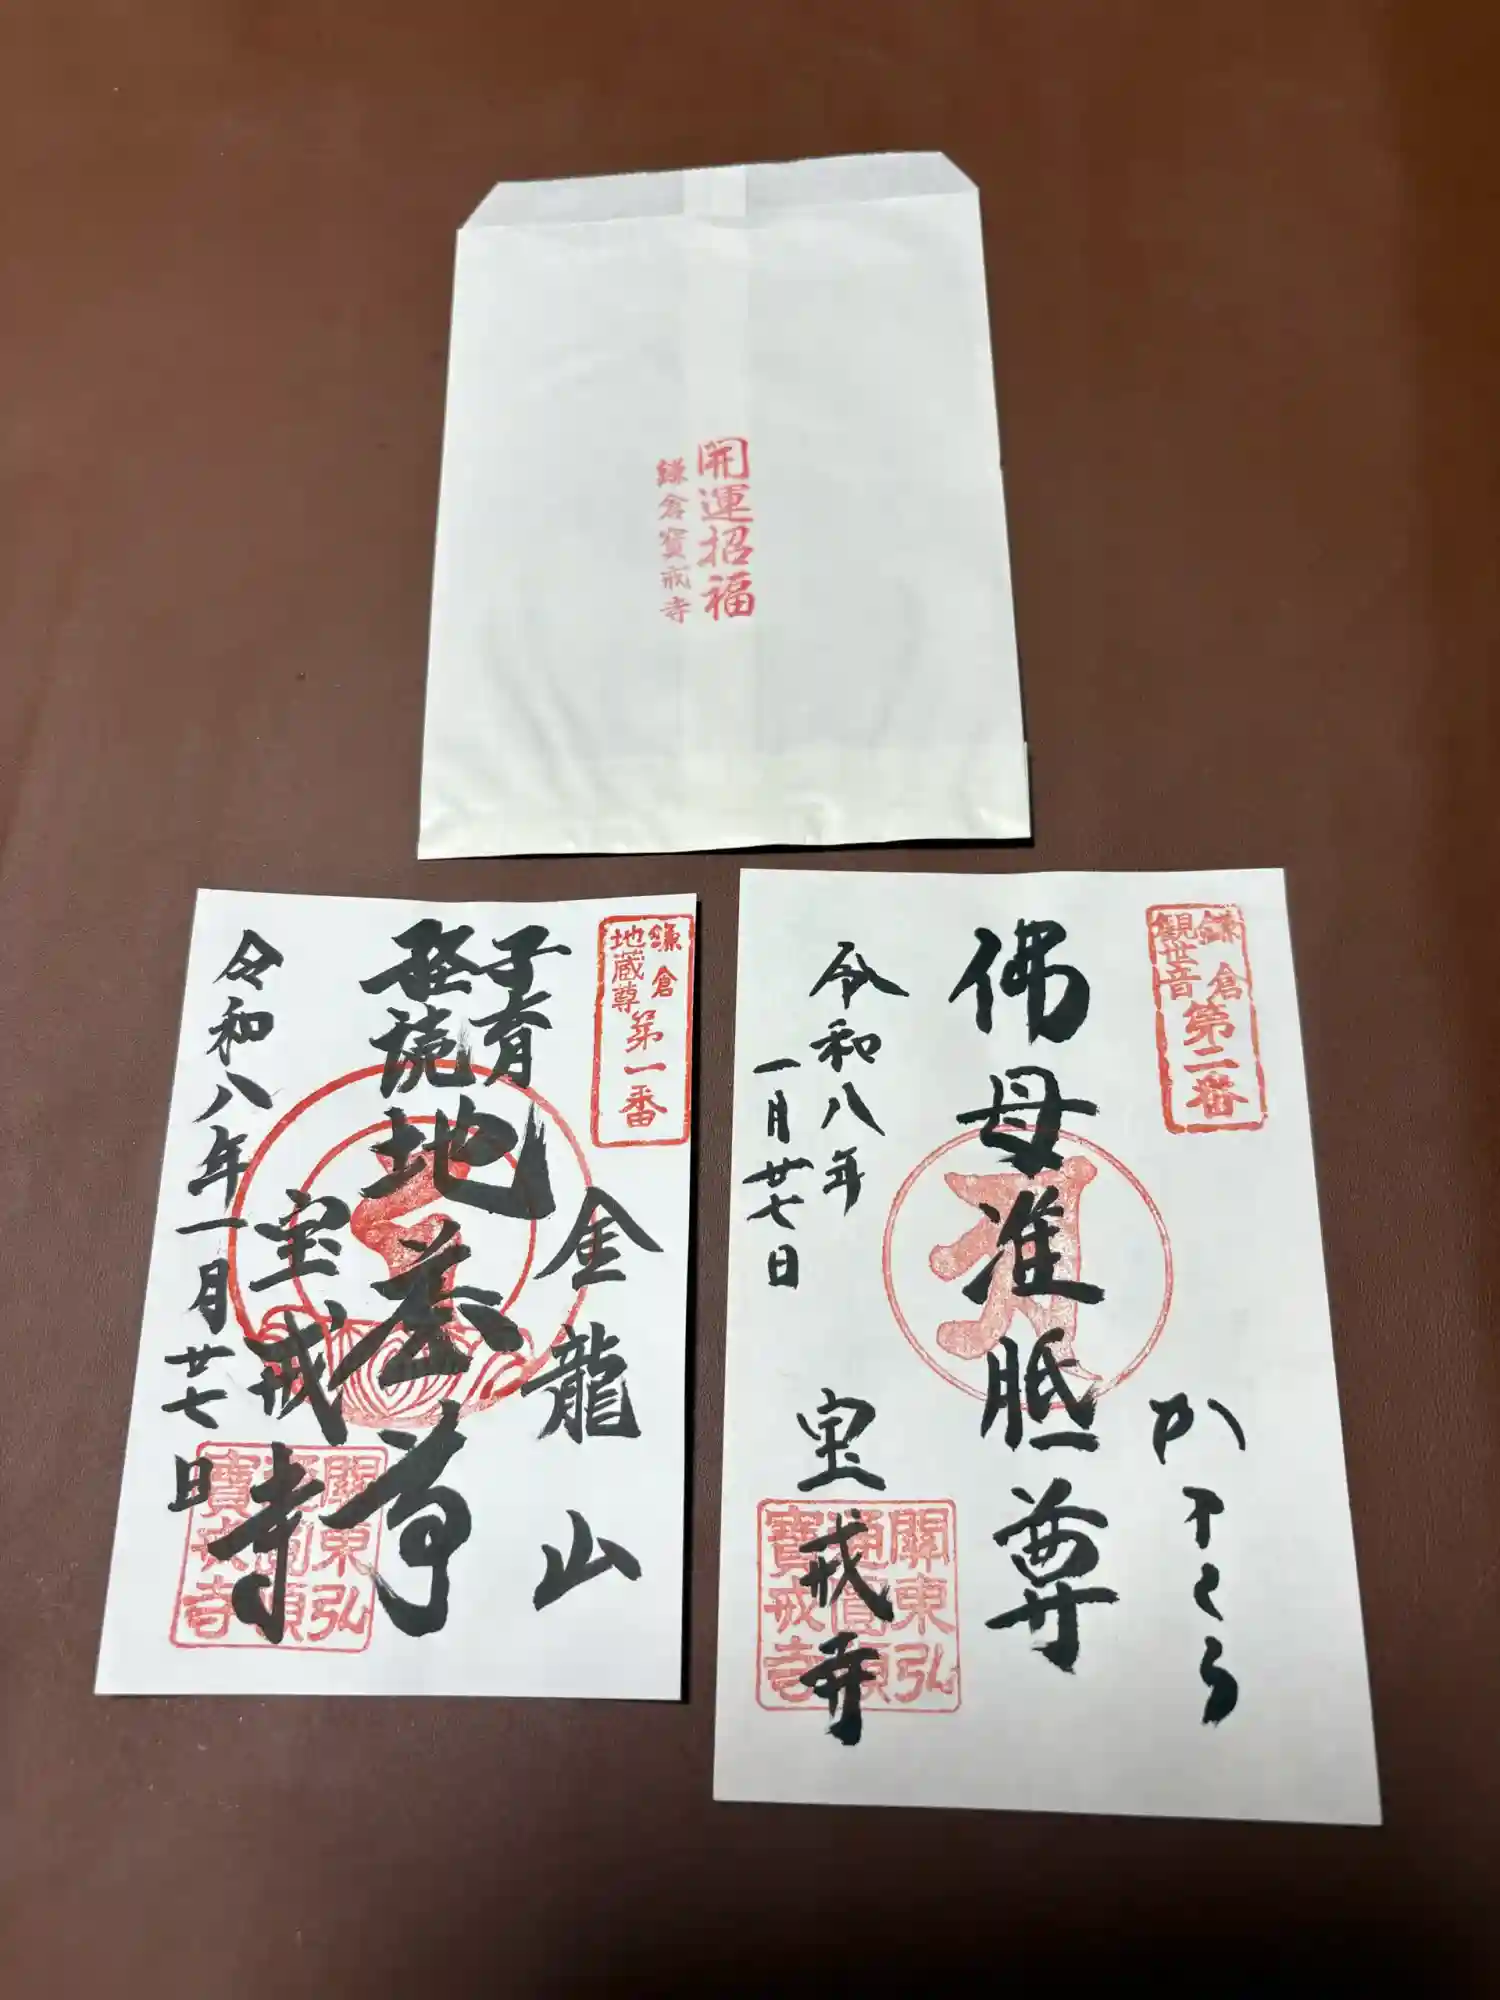 開運招福
鎌倉寳戒寺
鎌倉
地蔵尊
第一番
金龍山
子育
経読
地蔵尊
宝戒寺
令和八年一月廿七日
關東弘
通圓頓
寶戒寺
鎌倉
観世音
第二番
かまくら
佛母准胝尊
宝戒寺
令和八年
一月廿七日
關東弘
通圓頓
寶戒寺